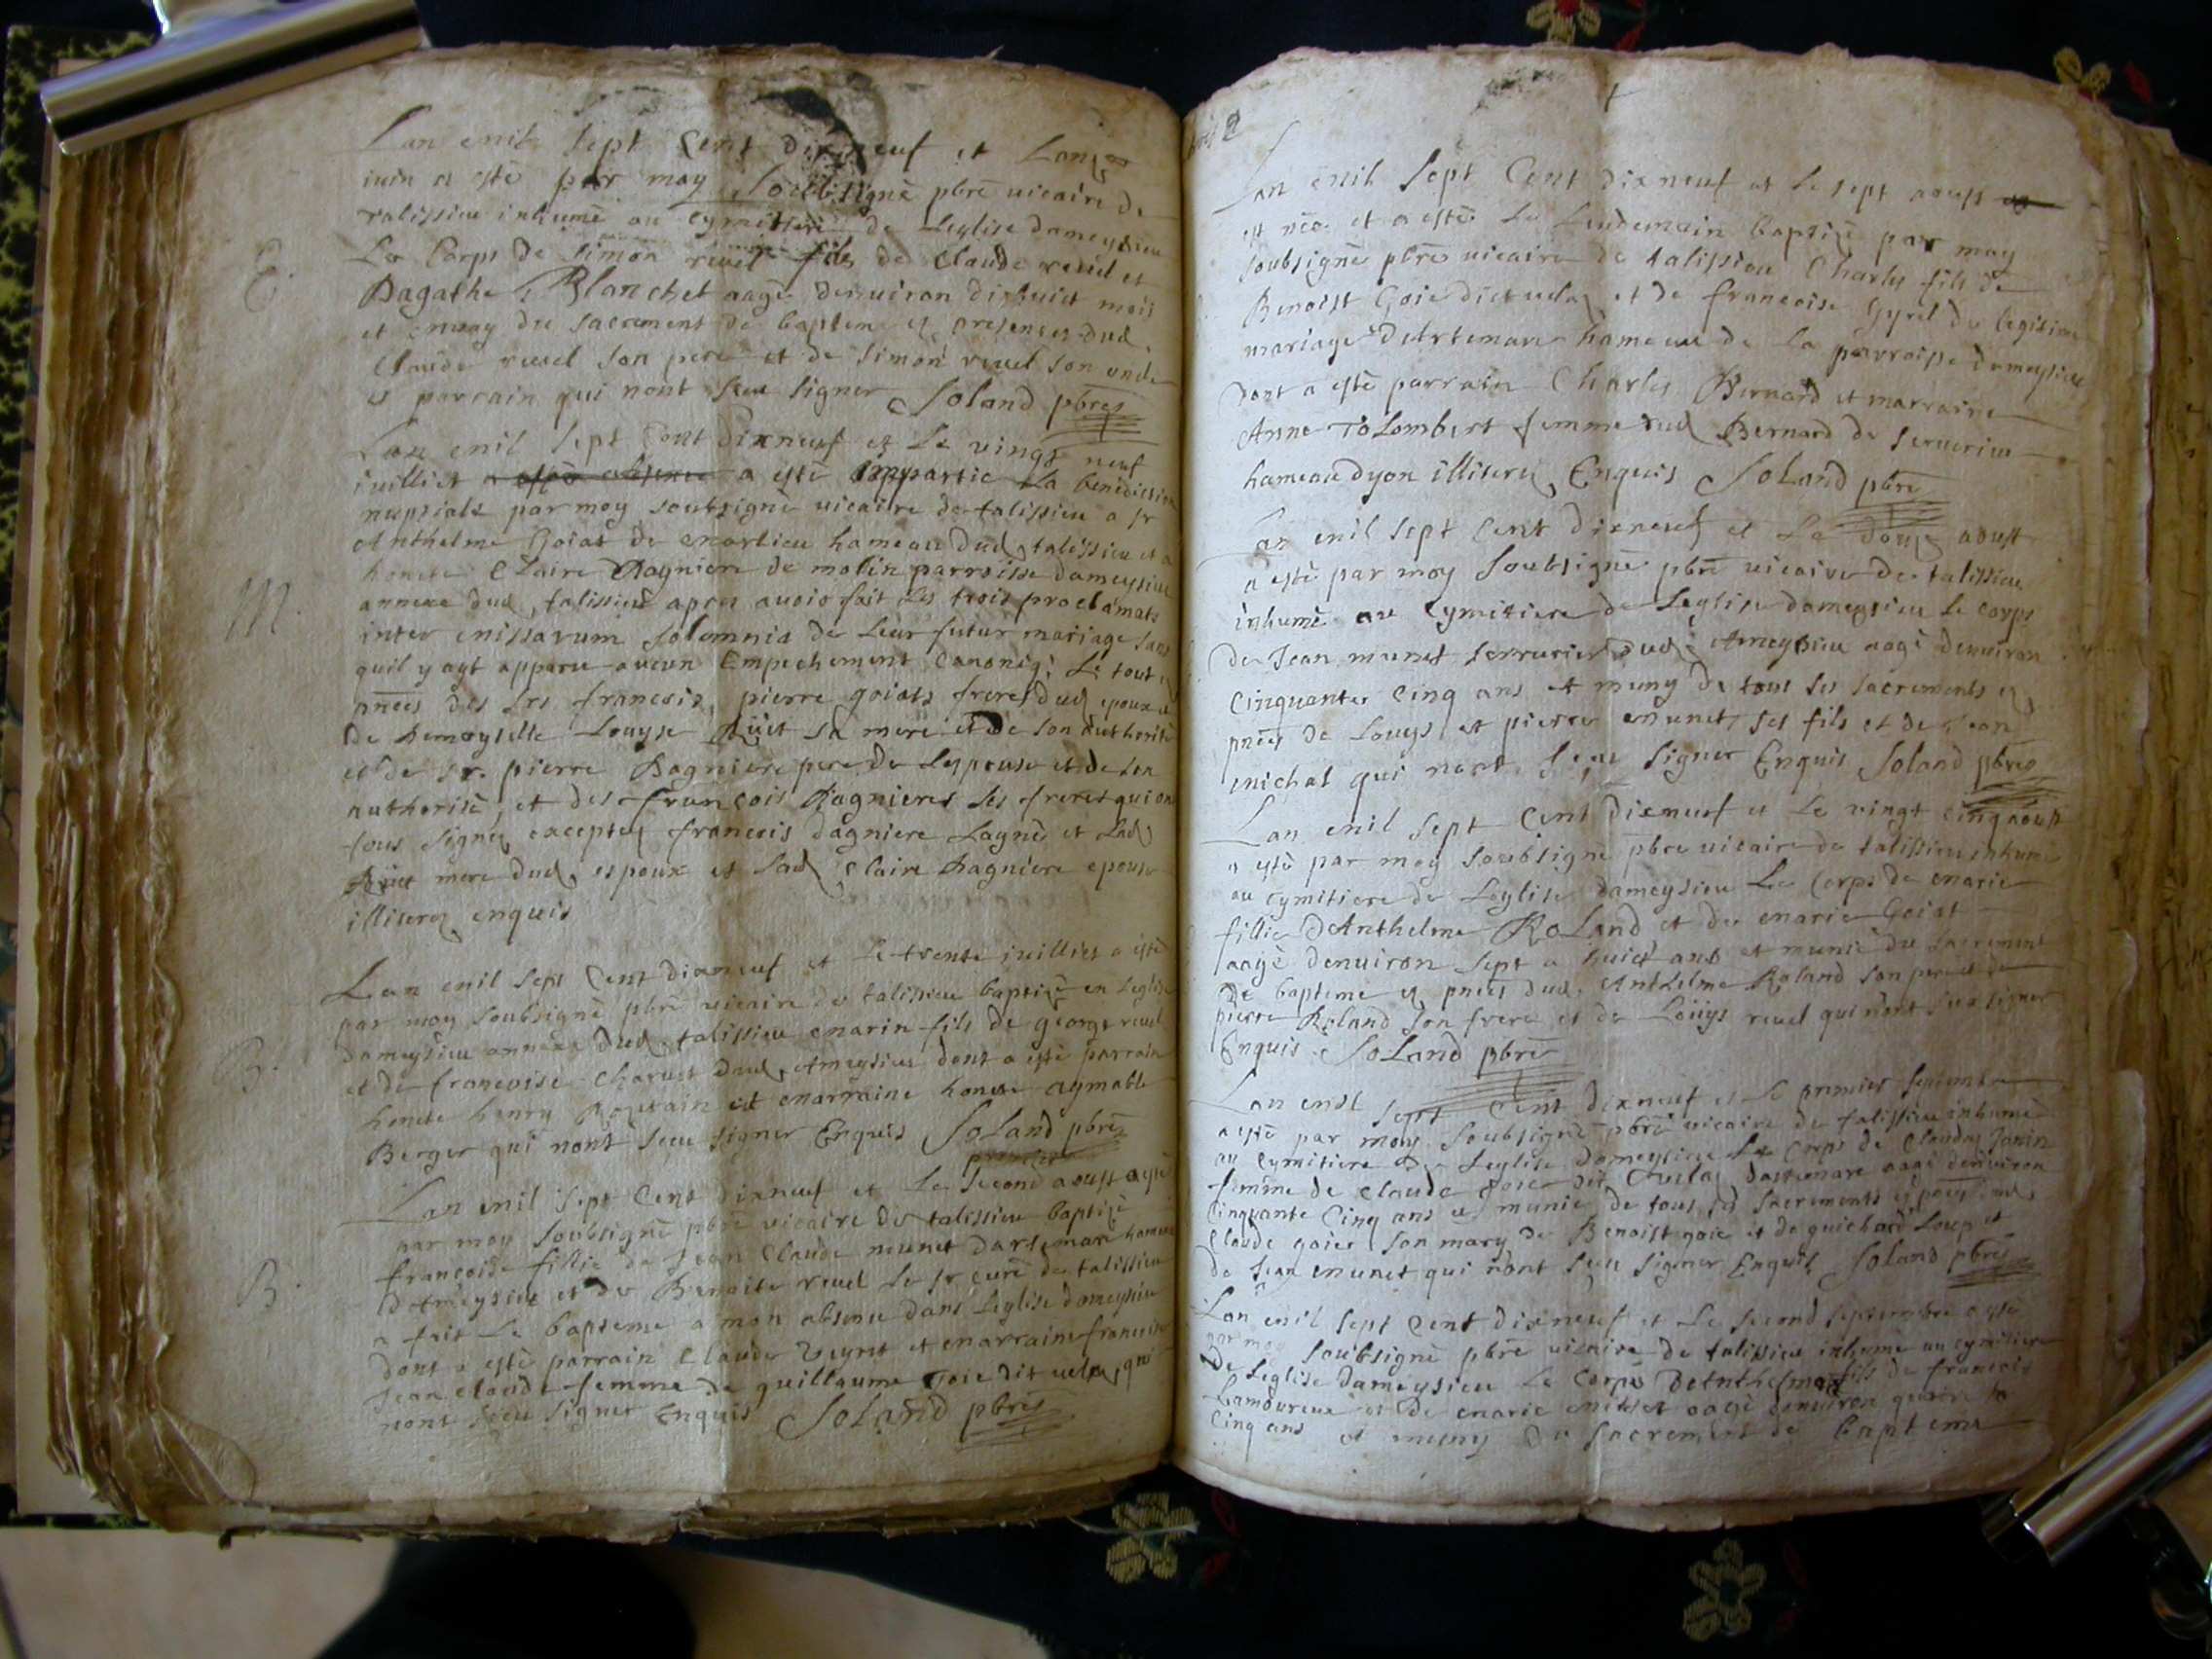 Lan mil sept Cent dixneuf et Lonze
iuin a esté par moy Soubsigné pbre uicaire de
talissieu inhumé au cymittiere de Leglise dameysieu
Le Corps de simon reuel fils de Claude reuel et
Dagathe Blanchet aagé denuiron dixhuict mois
E.
et muny du sacrement de bapteme es presences dud.
Claude reuel son pere et de simon reuel son oncle
et parrain qui nont sceu signer Soland pbre
Lan mil sept Cent dixneuf et Le vingt neuf
iuilliet a esté impartie La benediction
nuptiale par moy soubsigné uicaire de talissieu a sr
Anthelme Goiat de marlieu hameau dud. talissieu et a
honete Claire Dagniere de molin parroisse dameysieu
M.
annexe dud. talissieu apres auoir fait Les trois proclamats
inter missarum solemnia de Leur futur mariage sans
quil y ayt apparu aucun Empechement Canoniq; Le tout es
pnces des srs francois, pierre goiats freres dud epoux et
de demoyselle Louyse sa mere et de son authorité
et de sr. pierre Dagniere pere de Lespouse et de son
authorité, et des francois Dagnieres ses freres qui ont
tous signé exceptez francois dagniere Layné et Lad
mere dud. espoux et Lad Claire Dagniere epouse
illiterez enquis
Lan mil sept Cent dixneuf et Le trente iuilliet a esté
par moy soubsigné pbre uicaire de talissieu baptizé en Leglise
dameysieu annexe dud. talissieu marin fils de george reuel
B.
et de francoise Charuet dud. Ameysieu dont a esté parrain
honete henry et marraine honete aymable
Berger qui nont sceu signer Enquis Soland pbre
Lan mil sept Cent dixneuf et Le second aoust a esté
par moy soubsigné pbre vicaire de talissieu baptizé
francoise fillie de Jean Claude munet dartemare hameau
B.
dAmeysieu et de Benoite reuel Le sr curé de talissieu
a fait Le bapteme a mon absence dans Leglise dameysieu
dont a esté parrain Claude et marraine francoise
Jean Claude femme de guillaume Goie dit uelaz qui
nont sceu signer Enquis Soland pbre
Lan mil sept Cent dixneuf et Le sept aoust
est née et a esté Le Lendemain baptizé par moy
soubsigné pbre uicaire de talissieu Charles fils de
Benoist Goie dict uelaz et de francoise Gyrel du legitime
mariage dArtemare hameau de La parroisse dameysieu
dont a esté parrain Charles Bernard et marraine
Anne toLombert femme dud Bernard de
hameau dyon illiterez Enquis SoLand pbre
Lan mil sept Cent dixneuf et Le douze aoust
a esté par moy soubsigné pbre uicaire de talissieu
inhumé au cymitiere de Leglise dameysieu Le corps
de Jean munet serrurier dud. Ameysieu aagé denuiron
Cinquante Cinq ans et muny de tous ses sacrements es
pnces de Louys et pierre munet ses fils et de Jean
michal qui nont sceu signer Enquis Soland pbre
Lan mil sept Cent dixneuf et Le vingt cinq aoust
a esté par moy soubsigné pbre uicaire de talissieu inhumé
au cymitiere de Leglise dameysieu Le Corps de marie
fillie dAnthelme RoLand et de marie Goiat
aagé denuiron sept a huict ans et munie du sacrement
de bapteme es pnces dud. Anthelme Roland son pere et de
pierre Roland son frere et de Loüys reuel qui nont sceu signer
Enquis SoLand pbre
Lan mil sept Cent dixneuf et Le premier septembre
a esté par moy soubsigné pbre uicaire de talissieu inhumé
au cymitiere de Leglise dameysieu Le Corps de Claudaz Janin
femme de Claude goie dit dartemare aagé denuiron
Cinquante Cinq ans et munie de tous ses sacrements es pnces dud.
Claude goie son mary de Benoist goie et de guichard Loup et
de Jean munet qui nont sceu signer Enquis Soland pbre
Lan mil sept Cent dixneuf et Le second septembre a esté
par moy soubsigné pbre uicaire de talissieu inhumé au cymitiere
de Leglise dameysieu Le Corps dAnthelme fils de francois
Lamoureux et de marie aagé denuiron quatre a
Cinq ans et muny du sacrement de bapteme